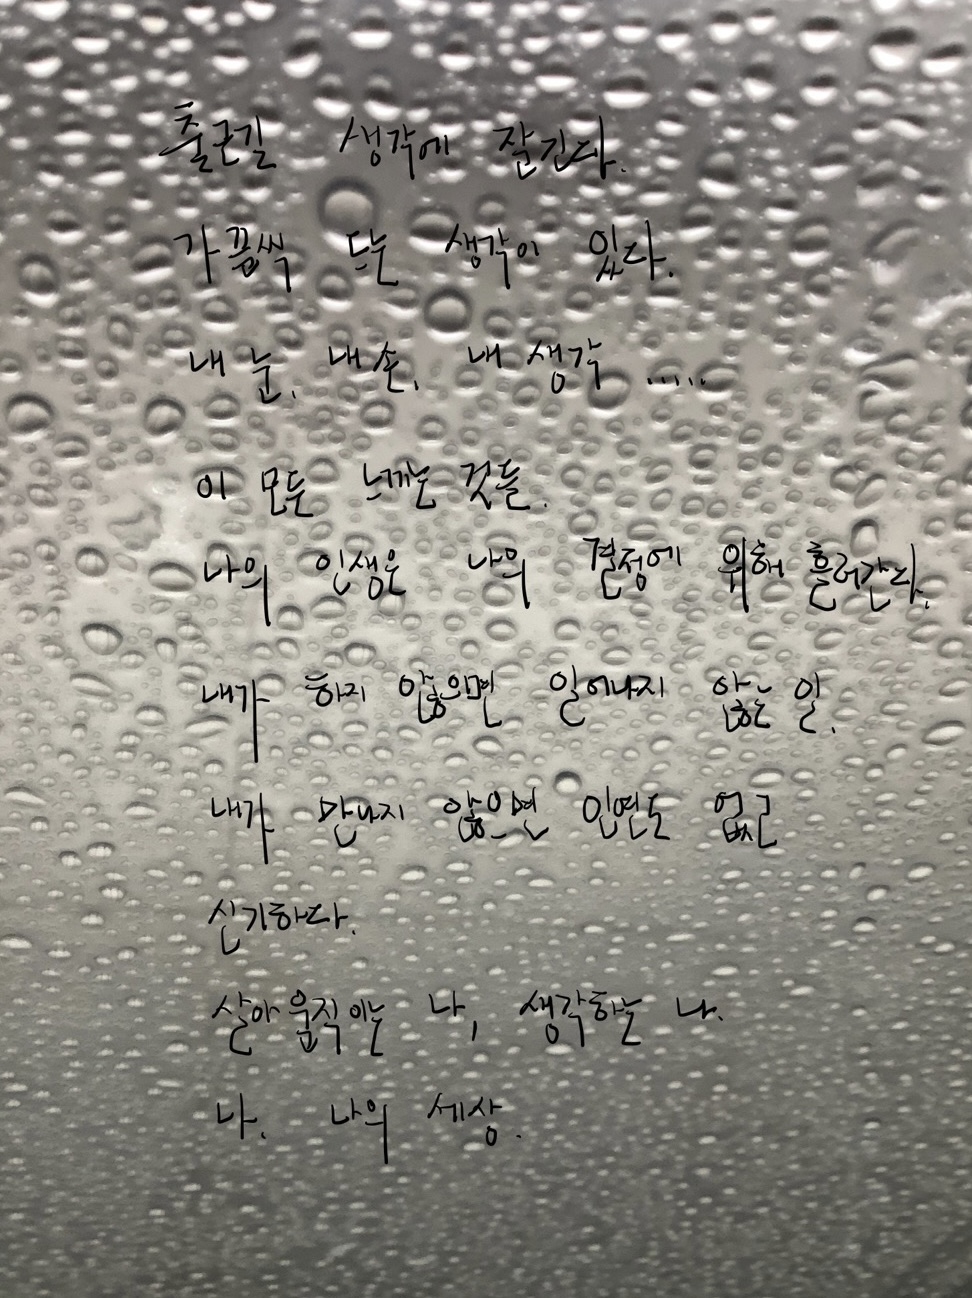 출근길 생각에 잘긴다.
가끔씩 드는 생각이 있다.
내 눈, 내 손, 내 생각 .....
이 모든 느끼는 것들.
나의 인생은 나의 결정에 위해 흘러간다.
내가 하지 않의면 일어나지 않는 일.
내가 만나지 않으면 인연도 없고
신기하다.
살아 움직이는 나, 생각하는 나.
나. 나의 세상.